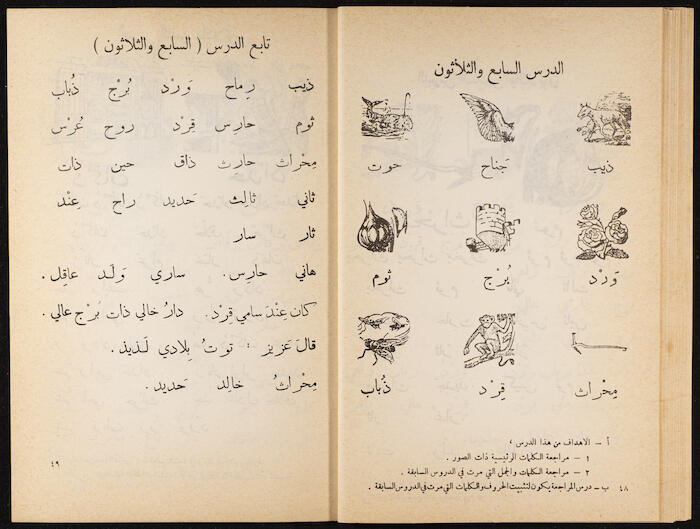 الدرس السابع والثلاثون
ذيب جَناح حوت
وَرْد بُرْج ثوم
مِحْراث قِرْد ذُباب
أ – الاهداف من هذا الدرس ،
١ – مراجعة الكلمات الرئيسية ذات الصور .
٢ – مراجعة الكلمات والجمل التي مرت في الدروس السابقة .
ب – درس المراجعة يكون لتثبيت الحروف والكلمات التي مرت في الدروس السابقة .
٤٨
تابع الدرس ( السابع والثلاثون )
ذيب رِماح وَرْد بُرْج ذُباب
ثوم حارِس قِرْد روح عُرْس
مِحْراث حارث ذاق حين ذات
ثاني ثالِث حَديد راح عِنْد
ثار سار
هاني حارِس . ساري وَلَد عاقِل .
كان عِنْدَ سامي قِرْد . دارُ خالي ذات بُرْج عالي .
قالَ عَزيز : توتُ بِلادي لَذيذ .
مِحْراثُ خالِد حَديد .
٤٩